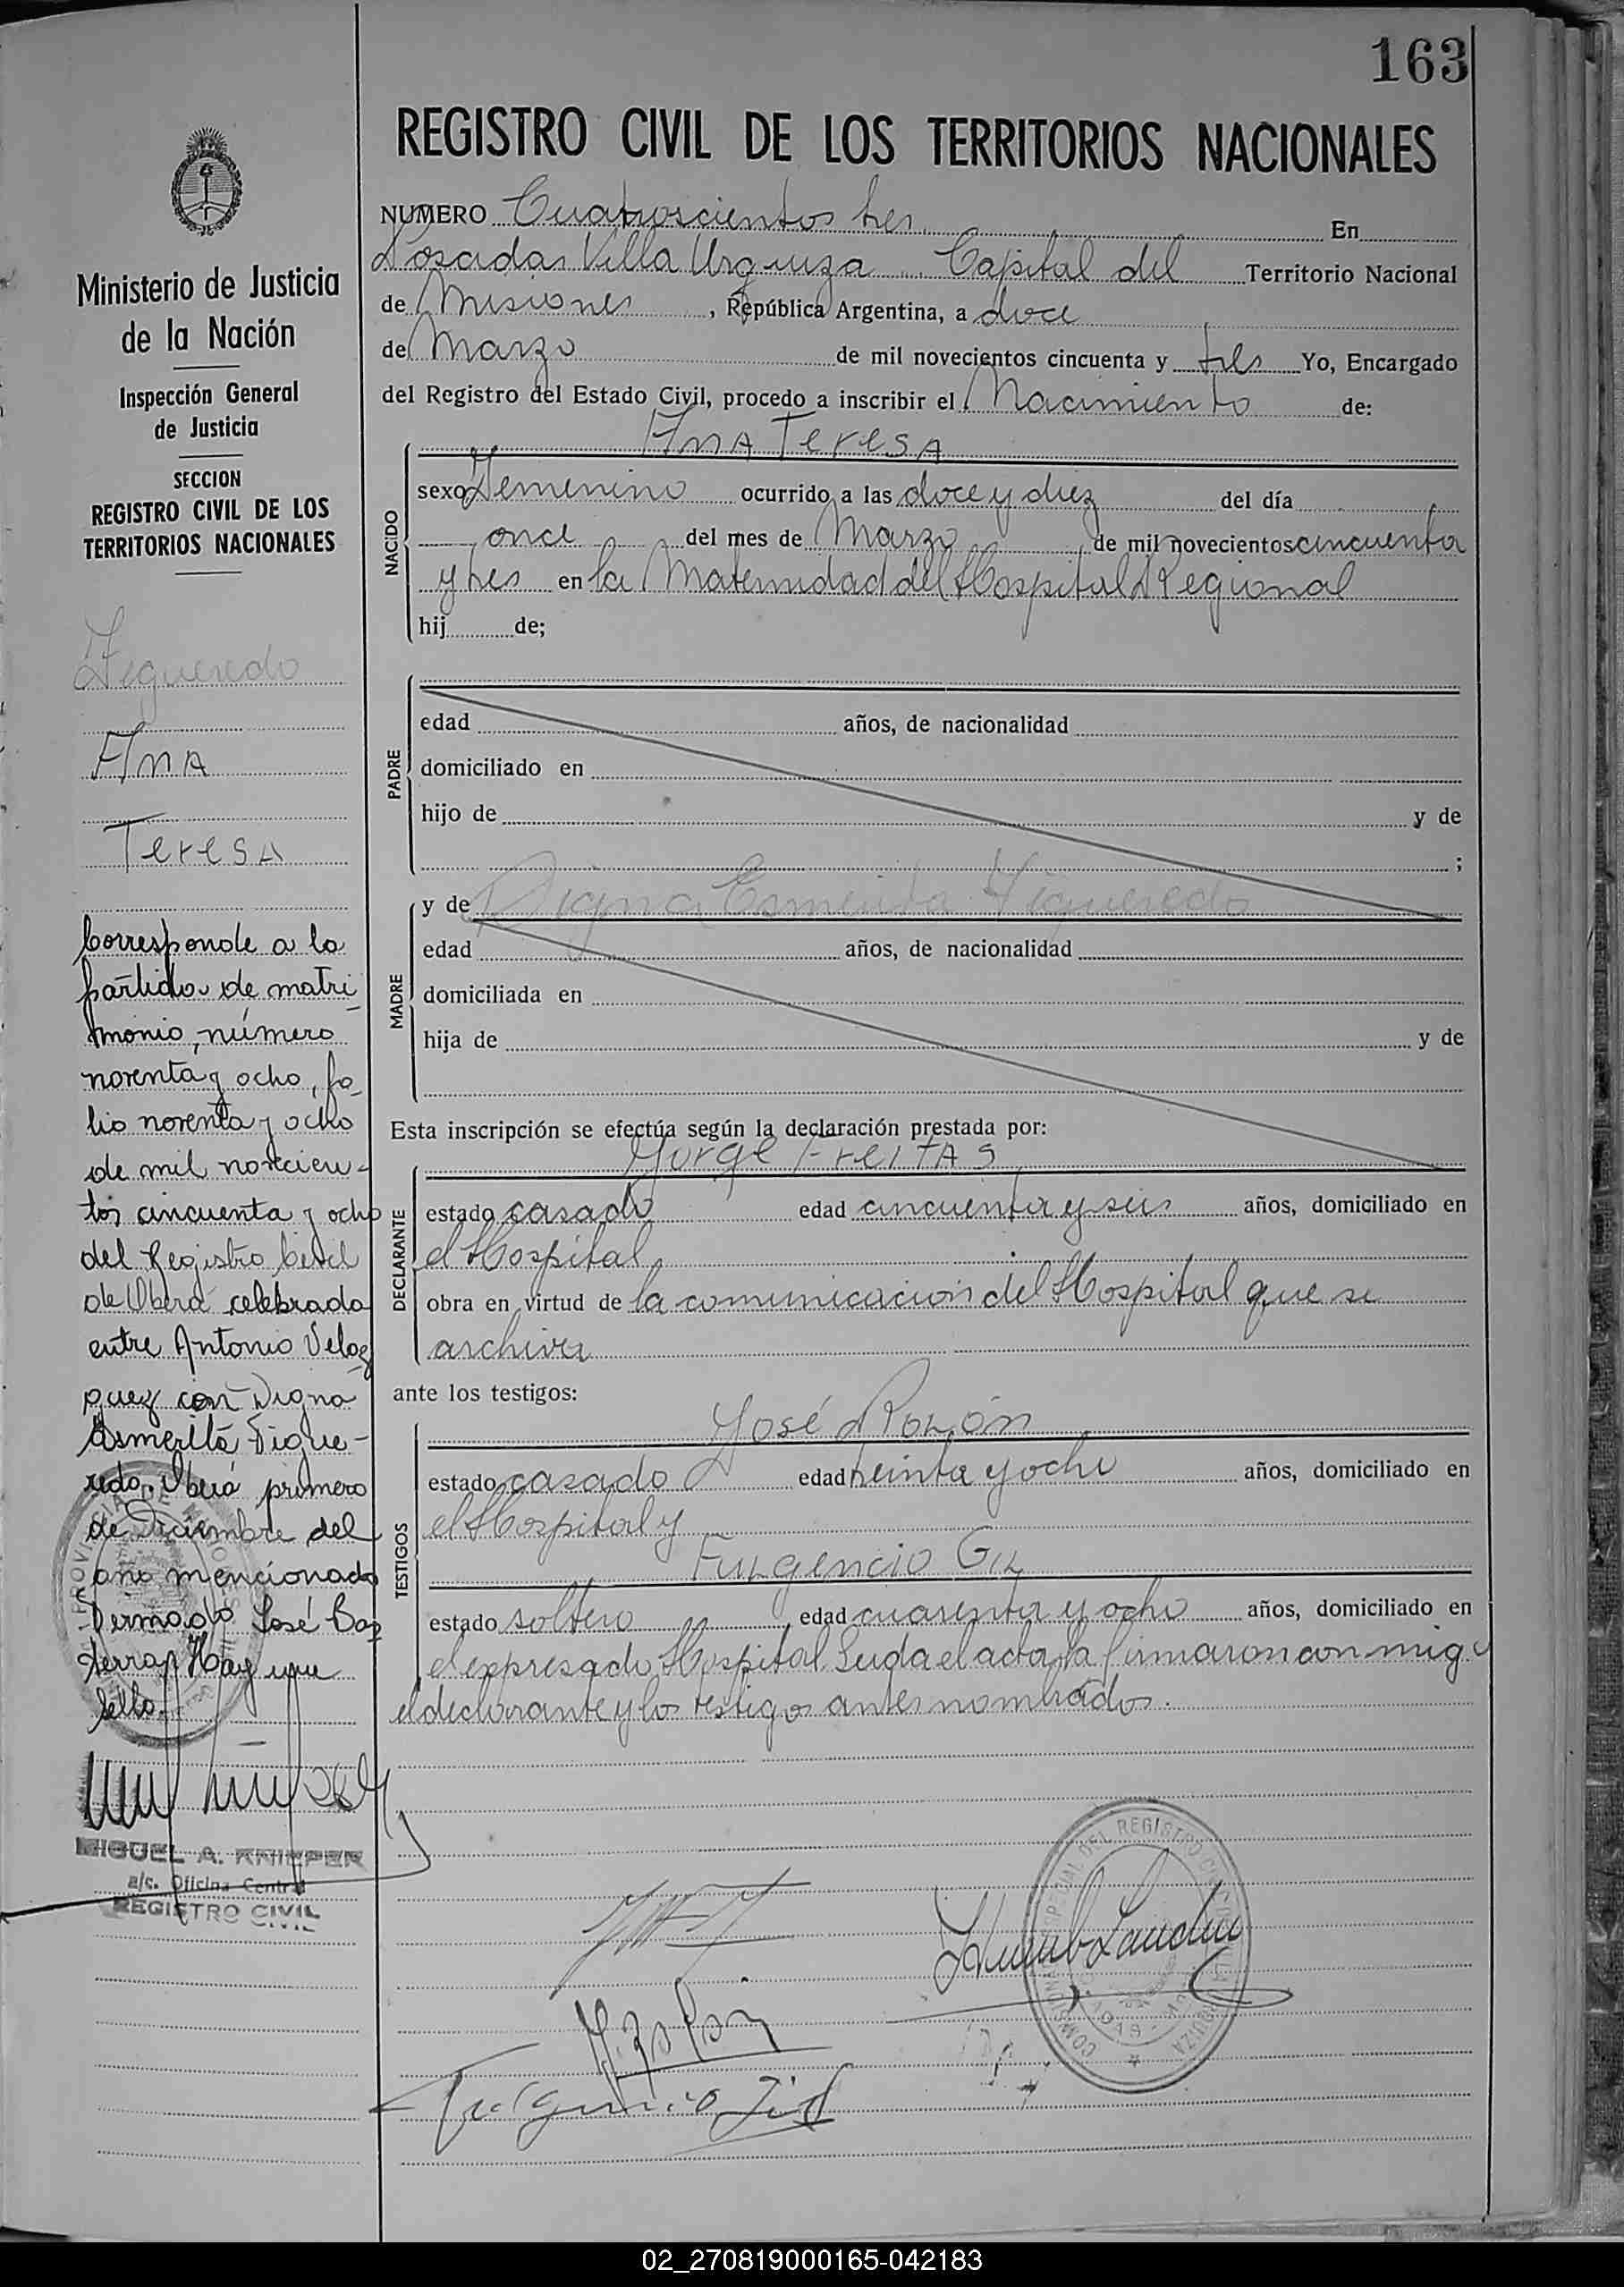 163
REGISTRO CIVIL DE LOS TERRITORIOS NACIONALES
NUMERO Cuatroscientos tres En
Posadas Villa Urquiza Capital del Territorio Nacional
de Misiones, República Argentina, a doce
de Marzo de mil novecientos cincuenta y tres Yo, Encargado
del Registro del Estado Civil, procedo a inscribir el Nacimiento de:
Ana Teresa
NACIDO
sexo Femenino ocurrido a las doce y diez del día
once del mes de Marzo de mil novecientos cincuenta
y tres en la Maternidad del Hospital Regional
hij de;
PADRE
edad años, de nacionalidad
domiciliado en
hijo de y de
;
MADRE
y de Digna Esmerita Figueredo
edad años, de nacionalidad
domiciliada en
hija de y de
Esta inscripción se efectúa según la declaración prestada por:
Jorge Freitas
DECLARANTE
estado casado edad cincuenta y seis años, domiciliado en
el Hospital
obra en virtud de la comunicacion del Hospital que se
archiva
ante los testigos:
José Rolón
TESTIGOS
estado casado edad treinta y ocho años, domiciliado en
el Hospital y
Fulgencio Gil
estado soltero edad cuarenta y ocho años, domiciliado en
el expresado Hospital Leida el acta la firmaron con migo
el declarante y los testigos antes nombrados.
Fulgencio Gil
Ministerio de Justicia
de la Nación
Inspección General
de Justicia
SECCION
REGISTRO CIVIL DE LOS
TERRITORIOS NACIONALES
Figueredo
Ana
Teresa
Corresponde a la
partida de matri
monio, número
noventa y ocho, fo-
lio noventa y ocho
de mil novecien-
tos cincuenta y ocho
del Registro Civil
de Oberá celebrada
entre Antonio Velaz
quez con Digna
Esmerita Figue-
redo. Oberá primero
de Diciembre del
año mencionado
Firmado José
Hay un
sello.
MIGUEL A. KNIEPER
a/c. Oficina Central
REGISTRO CIVIL
02_270819000165-042183